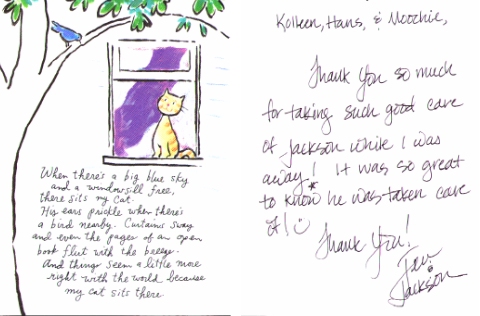 When there's a big blue sky
and a windowsill free,
there sits my cat.
His ears prickle when there's
a bird nearby. Curtains sway
and even the pages of an open
book flirt with the breeze.
And things seem a little more
right with the world because
my cat sits there
Kolleen, Hans, & Moochie,
Thank you so much
for taking such good care
of Jackson while I was
away! It was so great
to know he was taken care
of!
Thank you!
Jackson